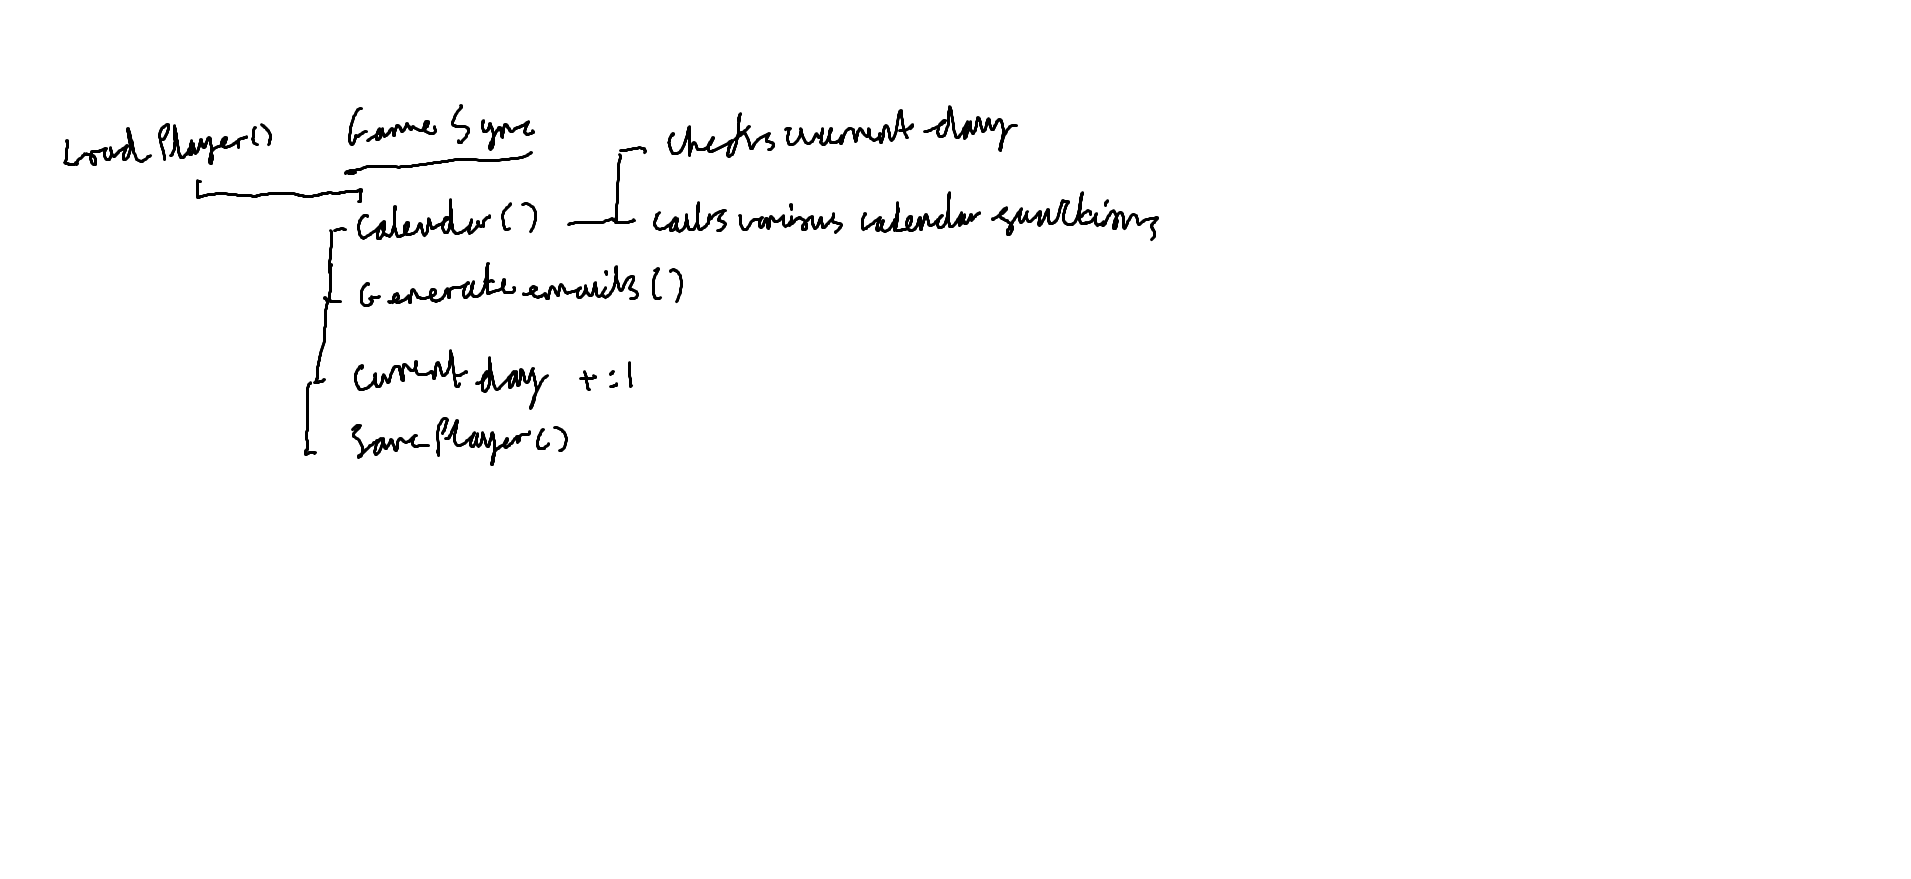 Load Player()
Game Sync
Checks current day
Calendar()
calls various calendar functions
Generate emails()
Current day +=1
Save Player()